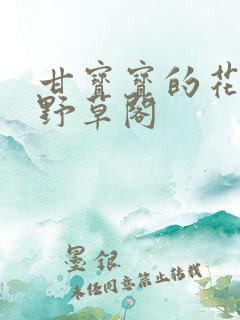 甘寳寳的花
野草閣
墨銀
未经同意禁止转载